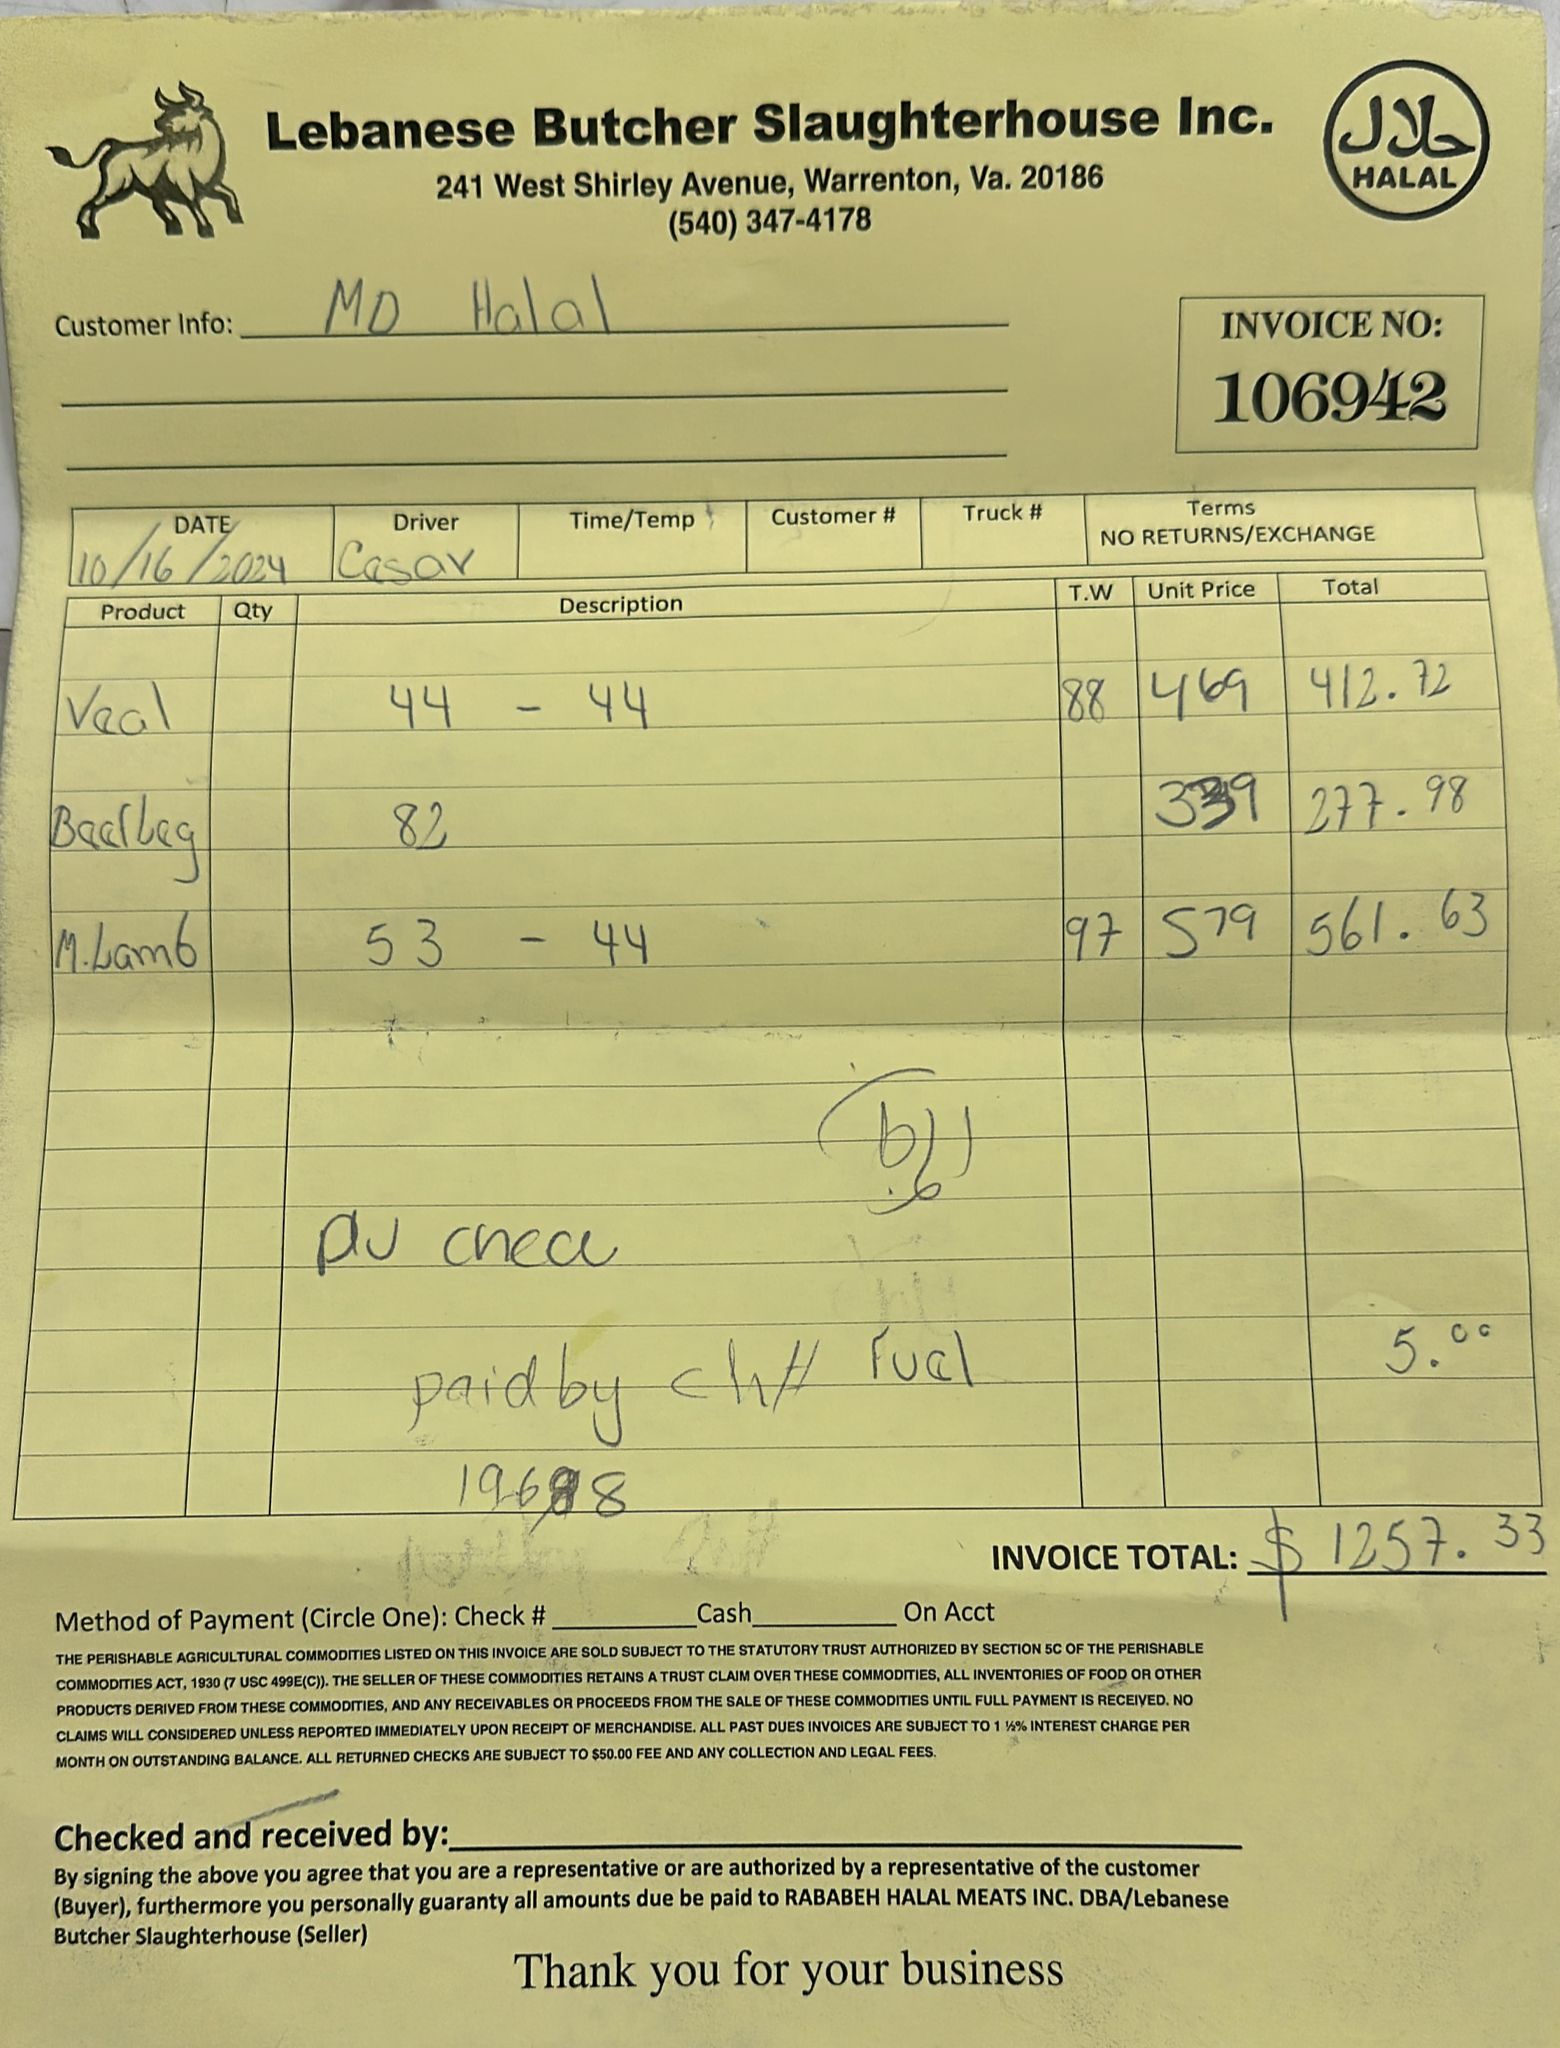 Lebanese Butcher Slaughterhouse Inc.
حلال
HALAL
241 West Shirley Avenue, Warrenton, Va. 20186
(540) 347-4178
Customer Info: MD Halal
INVOICE NO:
106942
DATE Driver Time/Temp Customer # Truck # Terms
NO RETURNS/EXCHANGE
10/16/2024 Cesar
Product Qty Description T.W Unit Price Total
Veal 44 - 44 88 469 412.72
Beef Leg 82 339 277.98
M.Lamb 53 - 44 97 579 561.63
check
paid by ch# Fuel 5.00
INVOICE TOTAL: $ 1257.33
Method of Payment (Circle One): Check # Cash On Acct
THE PERISHABLE AGRICULTURAL COMMODITIES LISTED ON THIS INVOICE ARE SOLD SUBJECT TO THE STATUTORY TRUST AUTHORIZED BY SECTION 5C OF THE PERISHABLE
COMMODITIES ACT, 1930 (7 USC 499E(C)). THE SELLER OF THESE COMMODITIES RETAINS A TRUST CLAIM OVER THESE COMMODITIES, ALL INVENTORIES OF FOOD OR OTHER
PRODUCTS DERIVED FROM THESE COMMODITIES, AND ANY RECEIVABLES OR PROCEEDS FROM THE SALE OF THESE COMMODITIES UNTIL FULL PAYMENT IS RECEIVED. NO
CLAIMS WILL CONSIDERED UNLESS REPORTED IMMEDIATELY UPON RECEIPT OF MERCHANDISE. ALL PAST DUES INVOICES ARE SUBJECT TO 1 ½% INTEREST CHARGE PER
MONTH ON OUTSTANDING BALANCE. ALL RETURNED CHECKS ARE SUBJECT TO $50.00 FEE AND ANY COLLECTION AND LEGAL FEES.
Checked and received by:
By signing the above you agree that you are a representative or are authorized by a representative of the customer
(Buyer), furthermore you personally guaranty all amounts due be paid to RABABEH HALAL MEATS INC. DBA/Lebanese
Butcher Slaughterhouse (Seller)
Thank you for your business